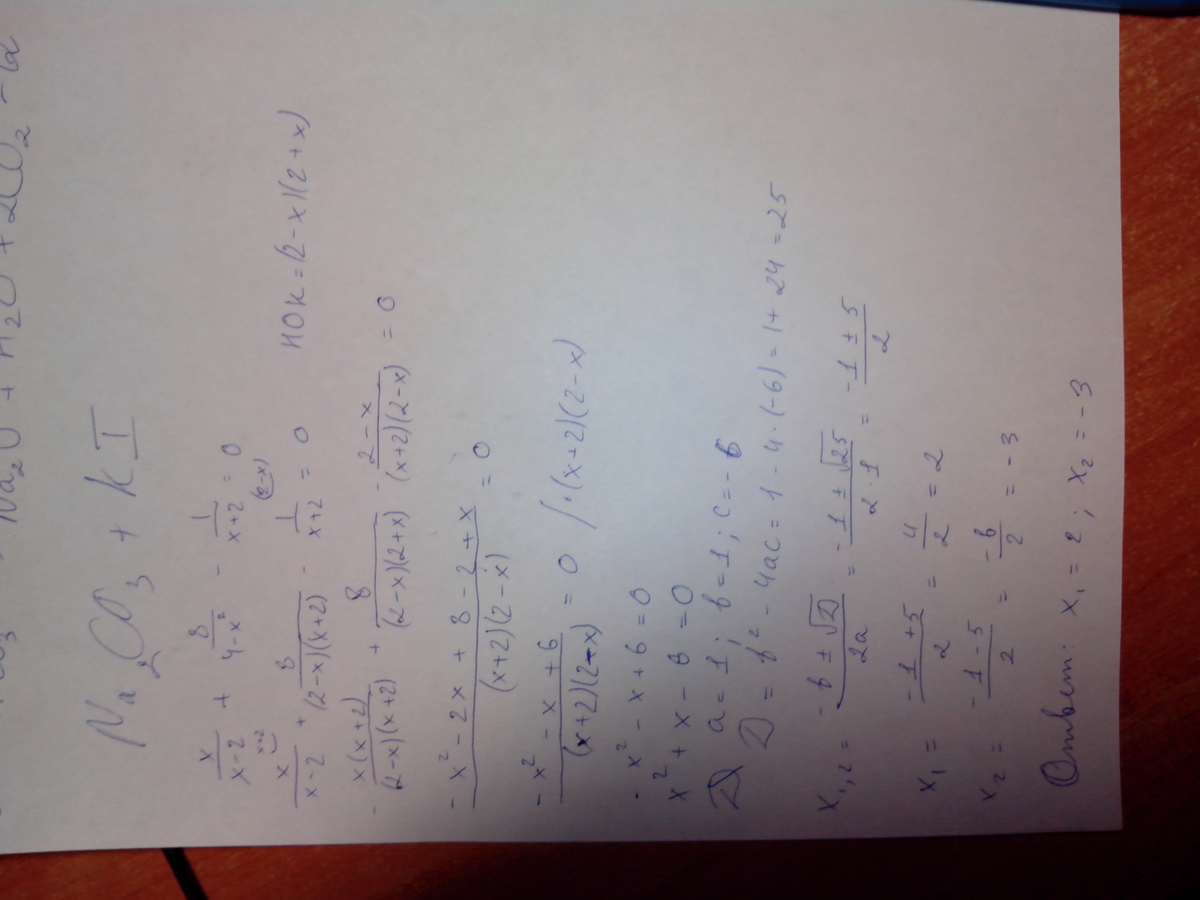 Na₂O + H₂O + 2CO₂
Na₂CO₃ + KI
x/(x-2) + 8/(4-x²) - 1/(x+2) = 0
x/(x-2) + 8/((2-x)(x+2)) - 1/(x+2) = 0 НОК = (2-x)(2+x)
- x(x+2)/((2-x)(x+2)) + 8/((2-x)(2+x)) - (2-x)/((x+2)(2-x)) = 0
(-x² - 2x + 8 - 2 + x)/((x+2)(2-x)) = 0
(-x² - x + 6)/((x+2)(2-x)) = 0 /·(x+2)(2-x)
-x² - x + 6 = 0
x² + x - 6 = 0
a = 1; b = 1; c = -6
D = b² - 4ac = 1 - 4·(-6) = 1 + 24 = 25
x₁,₂ = (-b ± √D)/2a = (-1 ± √25)/(2·1) = (-1 ± 5)/2
x₁ = (-1 + 5)/2 = 4/2 = 2
x₂ = (-1 - 5)/2 = -6/2 = -3
Ответ: x₁ = 2; x₂ = -3